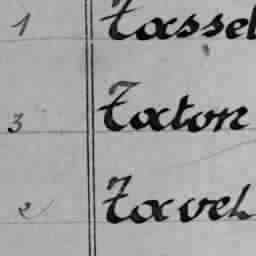 1 Tassel
3 Taton
2 Tavel